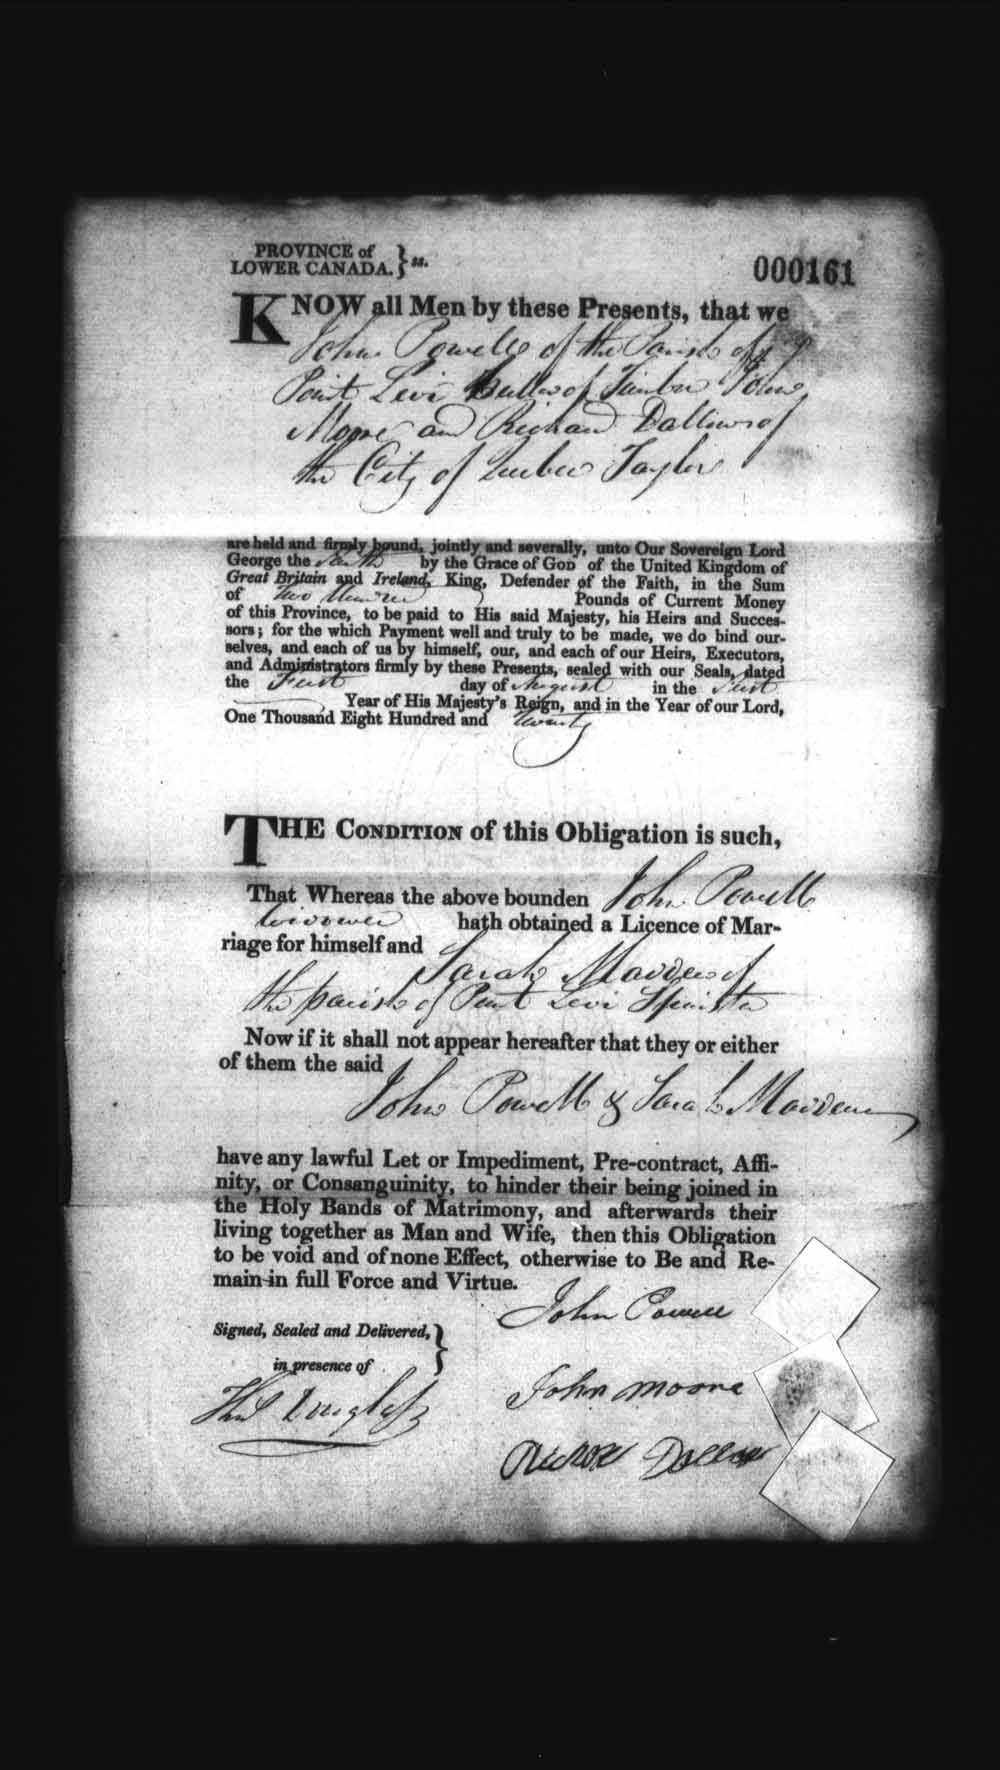 PROVINCE of
LOWER CANADA. } ss.
000161
KNOW all Men by these Presents, that we
John Powell of the Parish of
Point Levi of Timber John
Moore and Richard Dallow of
the City of Quebec Taylor
are held and firmly bound, jointly and severally, unto Our Sovereign Lord
George the Fourth by the Grace of GOD of the United Kingdom of
Great Britain and Ireland, King, Defender of the Faith, in the Sum
of Two Hundred Pounds of Current Money
of this Province, to be paid to His said Majesty, his Heirs and Succes-
sors; for the which Payment well and truly to be made, we do bind our-
selves, and each of us by himself, our, and each of our Heirs, Executors,
and Administrators firmly by these Presents, sealed with our Seals, dated
the First day of August in the First
Year of His Majesty's Reign, and in the Year of our Lord,
One Thousand Eight Hundred and Twenty
THE CONDITION of this Obligation is such,
That Whereas the above bounden John Powell
widower hath obtained a Licence of Mar-
riage for himself and
Sarah Madden of
the parish of Point Levi Spinster
Now if it shall not appear hereafter that they or either
of them the said
John Powell & Sarah Madden
have any lawful Let or Impediment, Pre-contract, Affi-
nity, or Consanguinity, to hinder their being joined in
the Holy Bands of Matrimony, and afterwards their
living together as Man and Wife, then this Obligation
to be void and of none Effect, otherwise to Be and Re-
main in full Force and Virtue.
John Powell
Signed, Sealed and Delivered, }
in presence of
John Moore